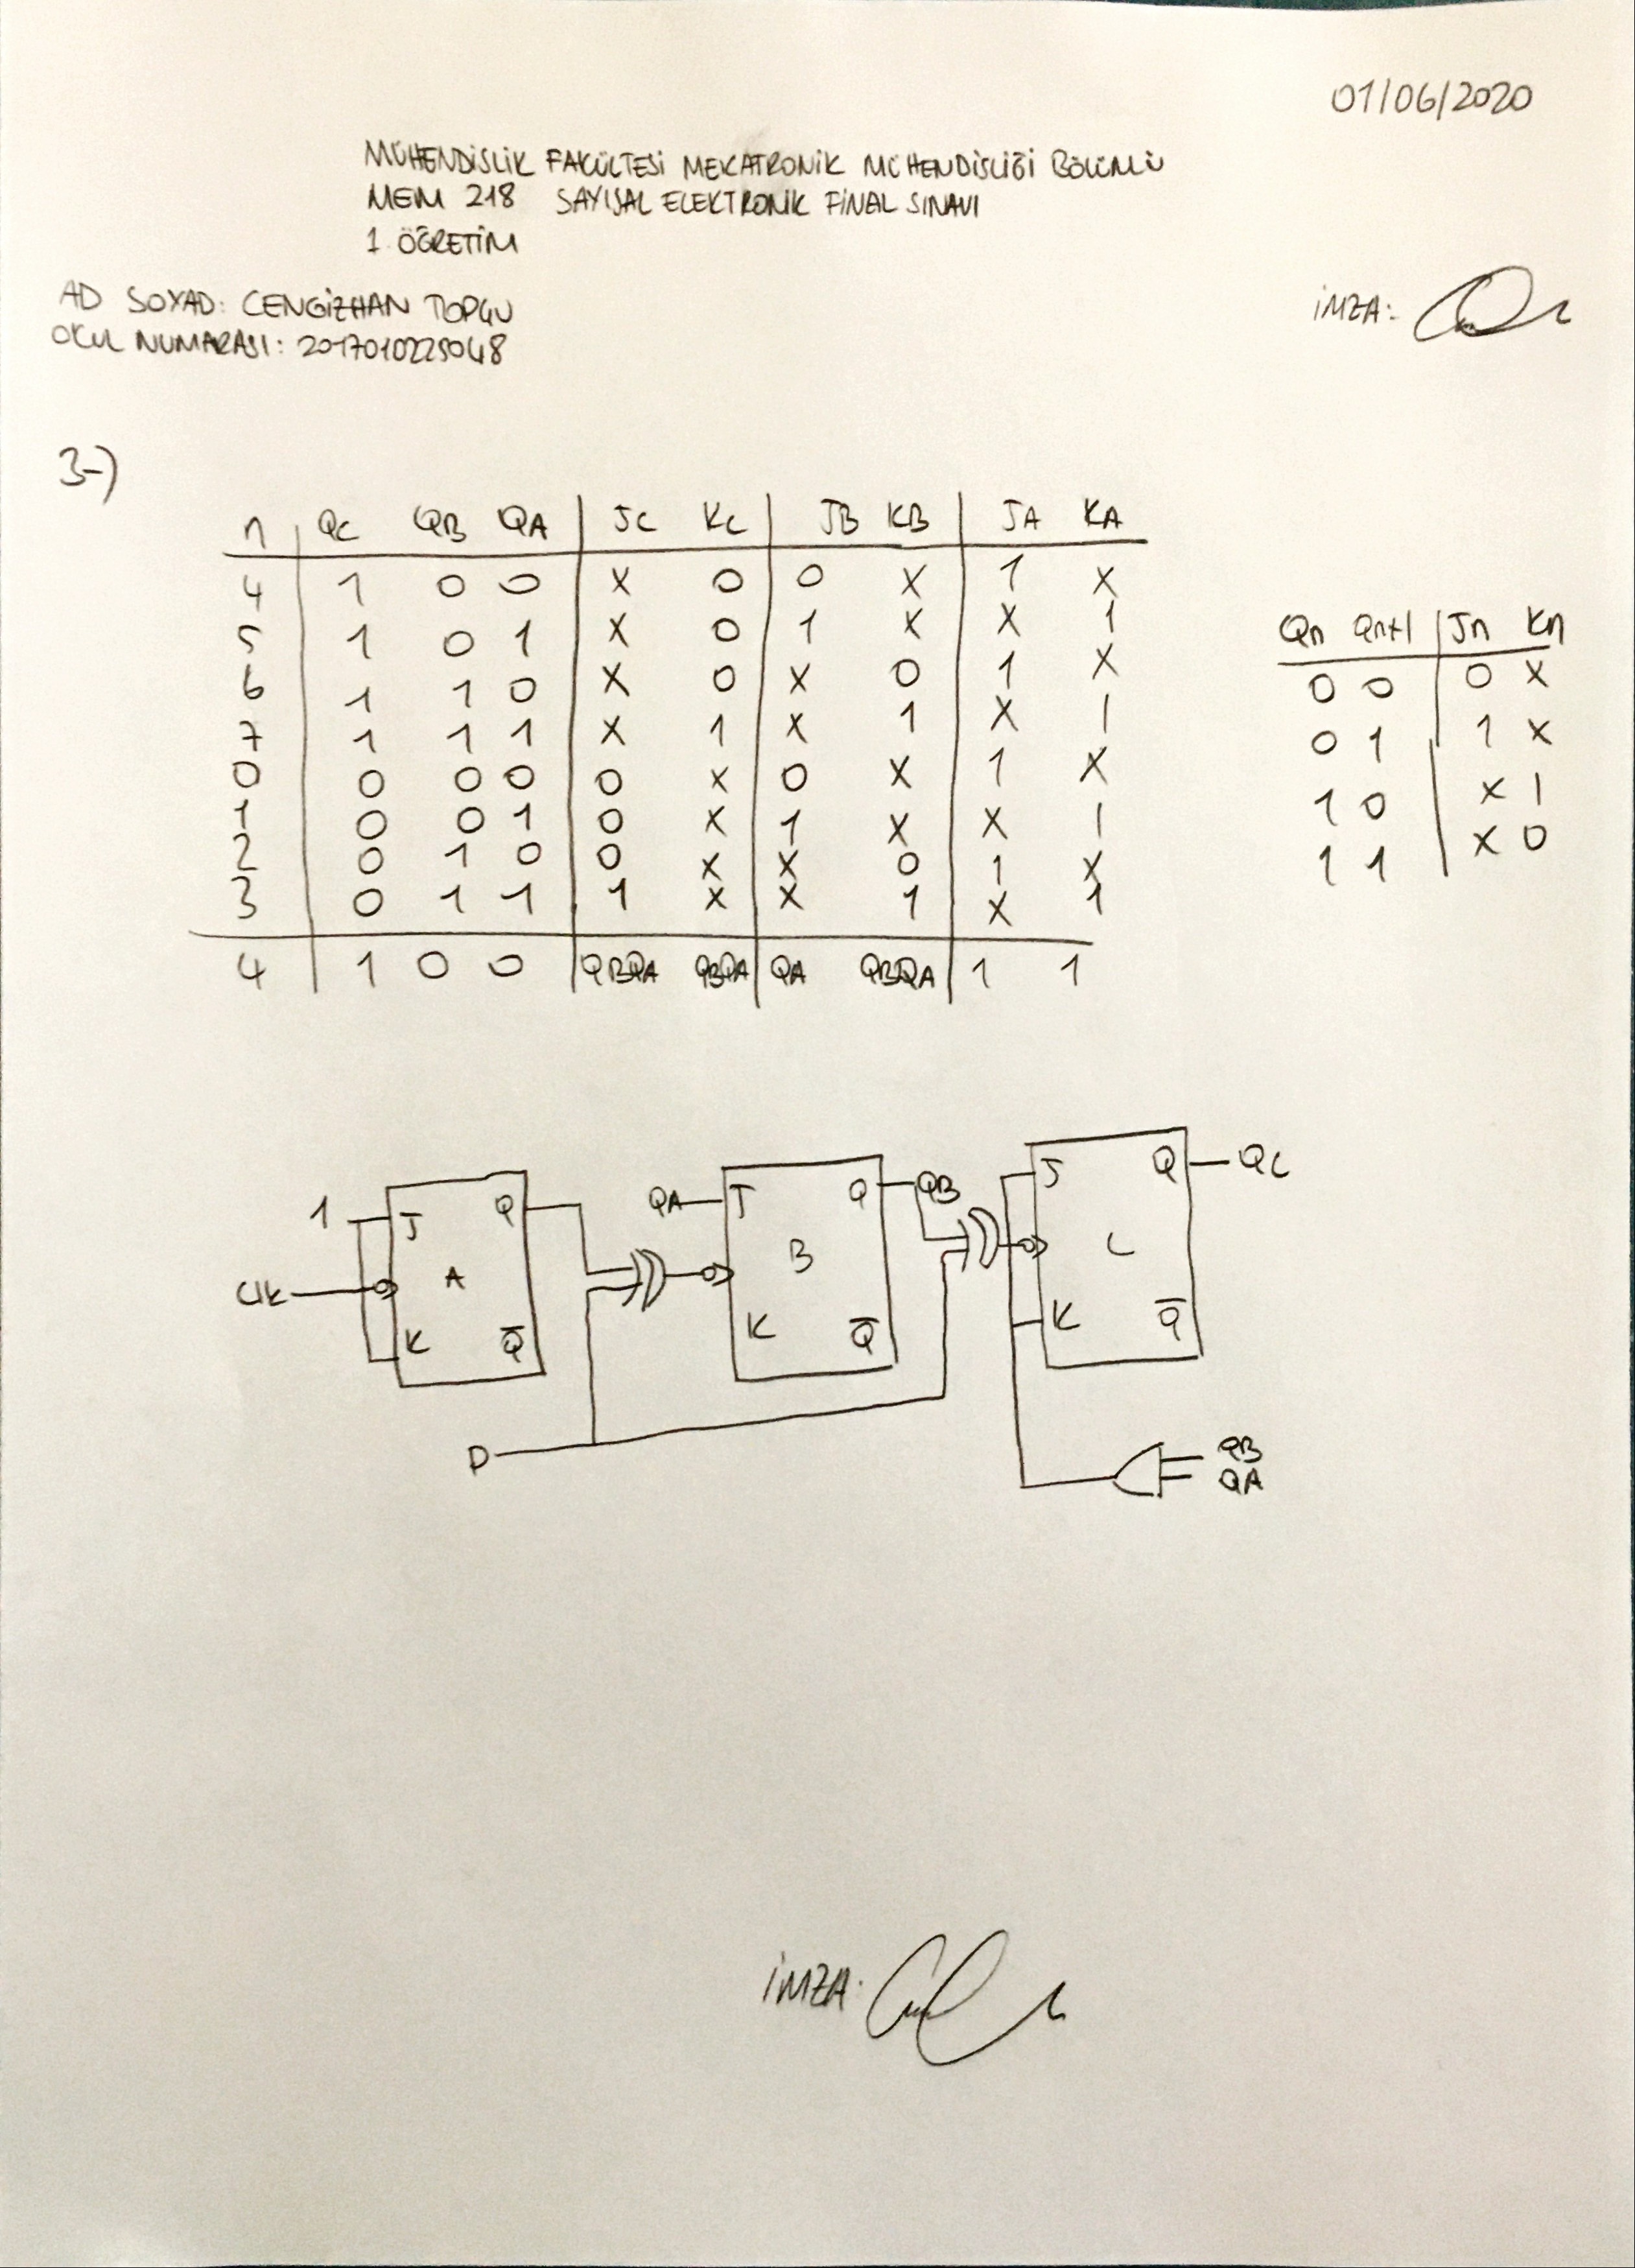 01/06/2020
MÜHENDİSLİK FAKÜLTESİ MEKATRONİK MÜHENDİSLİĞİ BÖLÜMÜ
MEM 218 SAYISAL ELEKTRONİK FİNAL SINAVI
1. ÖĞRETİM
AD SOYAD: CENGİZHAN TOPÇU
İMZA:
OKUL NUMARASI: 2017010225048
3-)
n QC QB QA JC KC JB KB JA KA
4 1 0 0 X 0 0 X 1 X
5 1 0 1 X 0 1 X X 1
6 1 1 0 X 0 X 0 1 X
7 1 1 1 X 1 X 1 X 1
0 0 0 0 0 X 0 X 1 X
1 0 0 1 0 X 1 X X 1
2 0 1 0 0 X X 0 1 X
3 0 1 1 1 X X 1 X 1
4 1 0 0 QBQA QBQA QA QBQA 1 1
Qn Qn+1 Jn Kn
0 0 0 X
0 1 1 X
1 0 X 1
1 1 X 0
1 J Q QA J Q QB J Q QC
Clk A B C
K Q̅ K Q̅ K Q̅
D
QB
QA
İMZA: